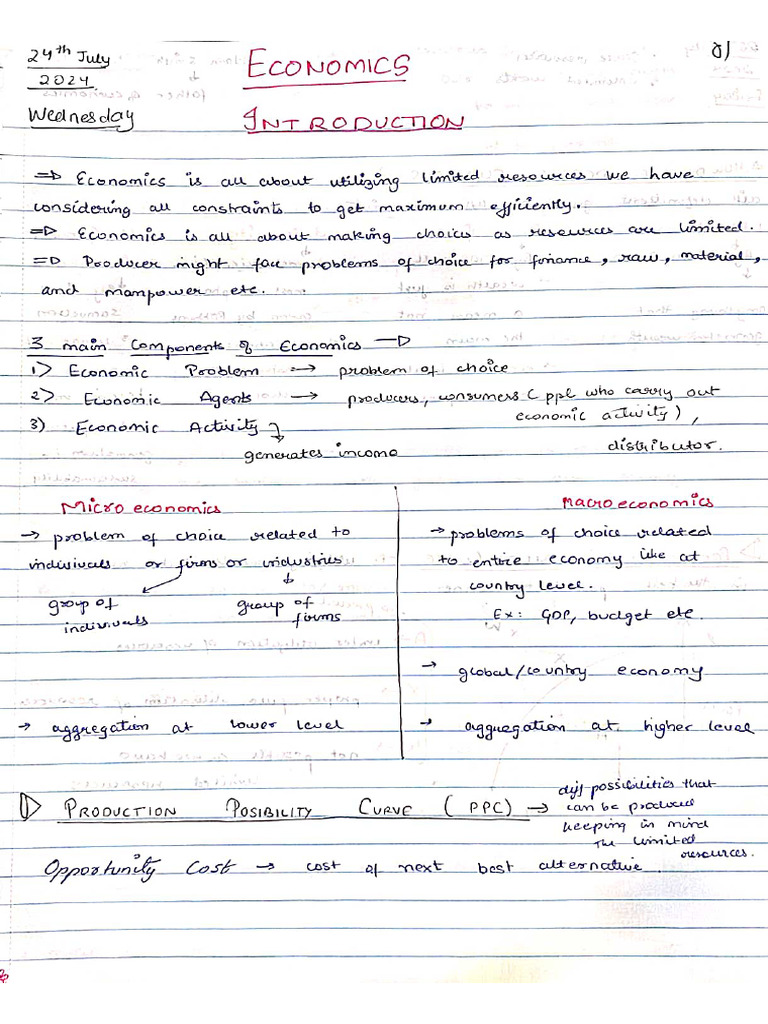 24th July
2024
Wednesday
8)
ECONOMICS
INTRODUCTION
=> Economics is all about utilizing limited resources we have
considering all constraints to get maximum efficiently.
=> Economics is all about making choices as resources are limited.
=> Producer might face problems of choice for finance, raw, material,
and manpower etc.
3 main Components of Economics →
1) Economic Problem → problem of choice
2) Economic Agents → producers, consumers ( ppl who carry out
economic activity),
distributor.
3) Economic Activity
generates income
Microeconomics
→ problem of choice related to
indivivals or firms or industries
group of
indivivals
group of
firms
→ aggregation at lower level
Macroeconomics
→ problems of choice related
to entire economy like at
country level.
Ex: GDP, budget etc.
→ global/country economy
→ aggregation at higher level
PRODUCTION POSIBILITY CURVE ( PPC) → diff possibilities that
can be produced
keeping in mind
The limited
resources.
Opportunity Cost → cost of next best alternative.